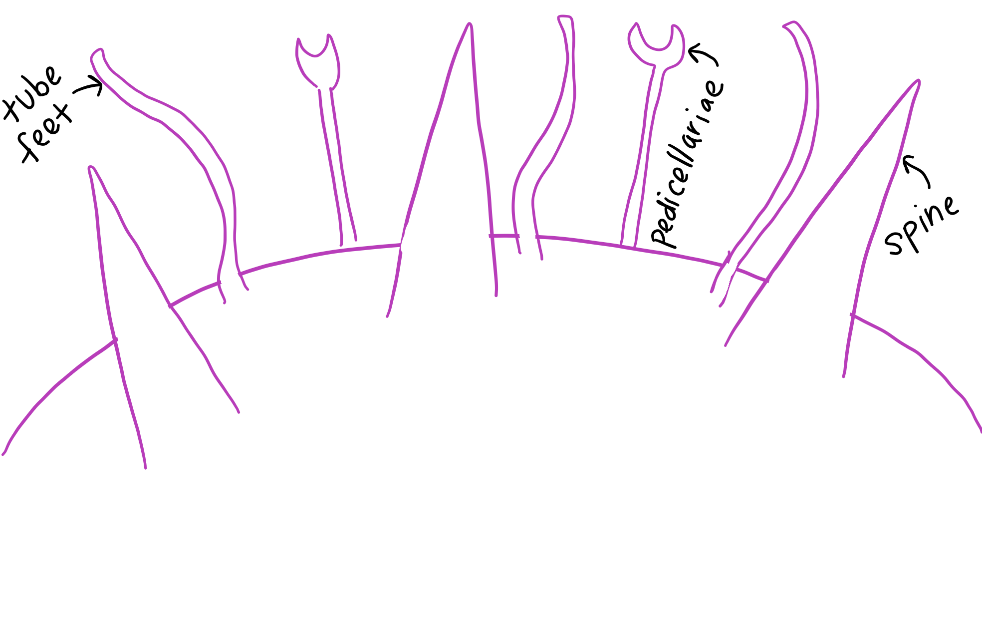 tube
feet
Pedicellariae
spine